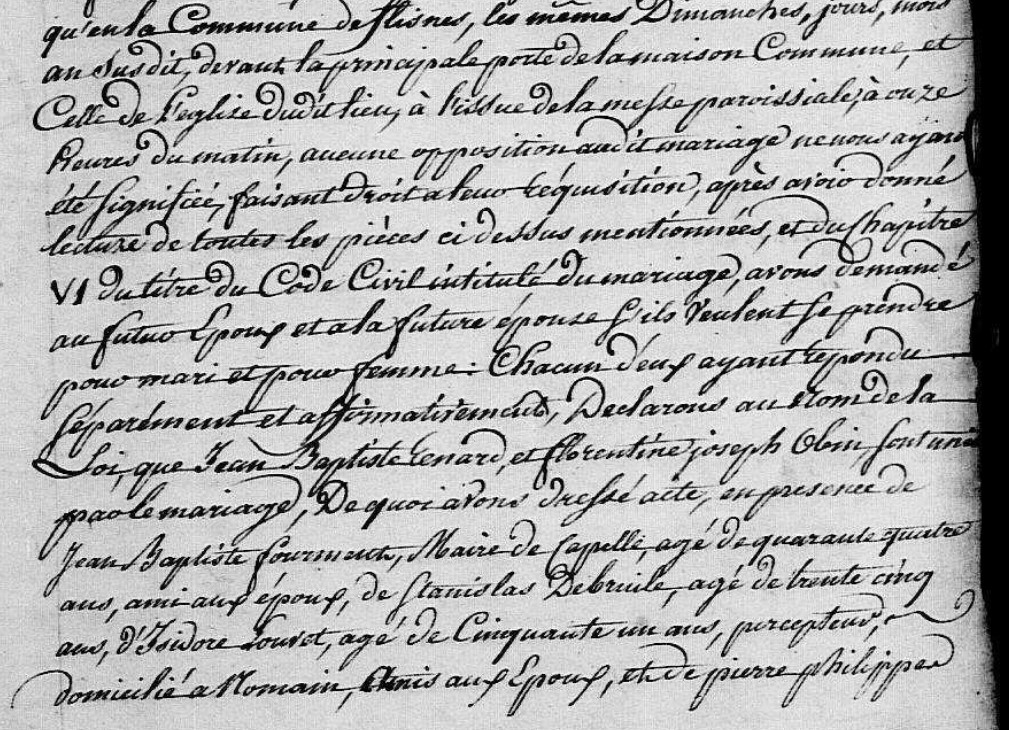 qu'en la Commune de flisnes, les mêmes Dimanches, jours, mois
an susdit, devant la principale porte de la maison Commune, et
Celle de l'eglise dudit lieu, à l'issue de la messe paroissiale, à onze
heures du matin, aucune opposition audit mariage ne nous ayant
été signifiée, faisant droit a leur réquisition, après avoir donné
lecture de toutes les pièces ci dessus mentionnées, et du Chapitre
VI du titre du Code Civil intitulé du mariage, avons demandé
au futur Epoux et a la future épouse s'ils veulent se prendre
pour mari et pour femme : Chacun d'eux ayant repondu
séparément et affirmativement, Declarons au Nom de la
Loi, que Jean Baptiste Lenard, et florentine joseph Obin, sont unis
par le mariage, De quoi avons dressé acte, en presence de
Jean Baptiste fourment, Maire de Capelle, agé de quarante quatre
ans, ami aux époux, de Stanislas Debruile, agé de trente cinq
ans, d'Isidore Louvet, agé de Cinquante un ans, percepteur,
domicilié a Nomain, Amis aux Epoux, et de pierre philippe